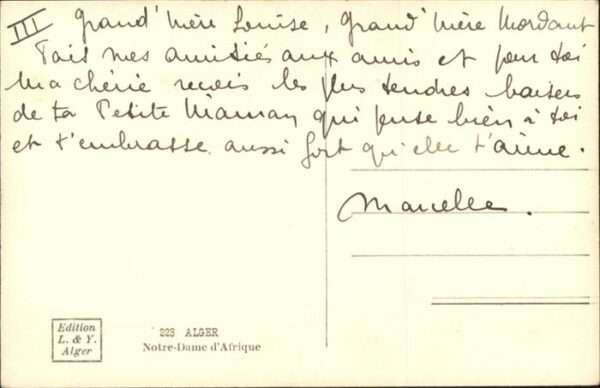 III
Grand'Mère Louise, Grand'Mère Mordant
Fais mes amitiés aux amis et pour toi
ma chérie reçois les plus tendres baisers
de ta Petite Maman qui pense bien à toi
et t'embrasse aussi fort qu'elle t'aime.
Marcelle.
Edition
L. & Y.
Alger
223 ALGER
Notre-Dame d'Afrique